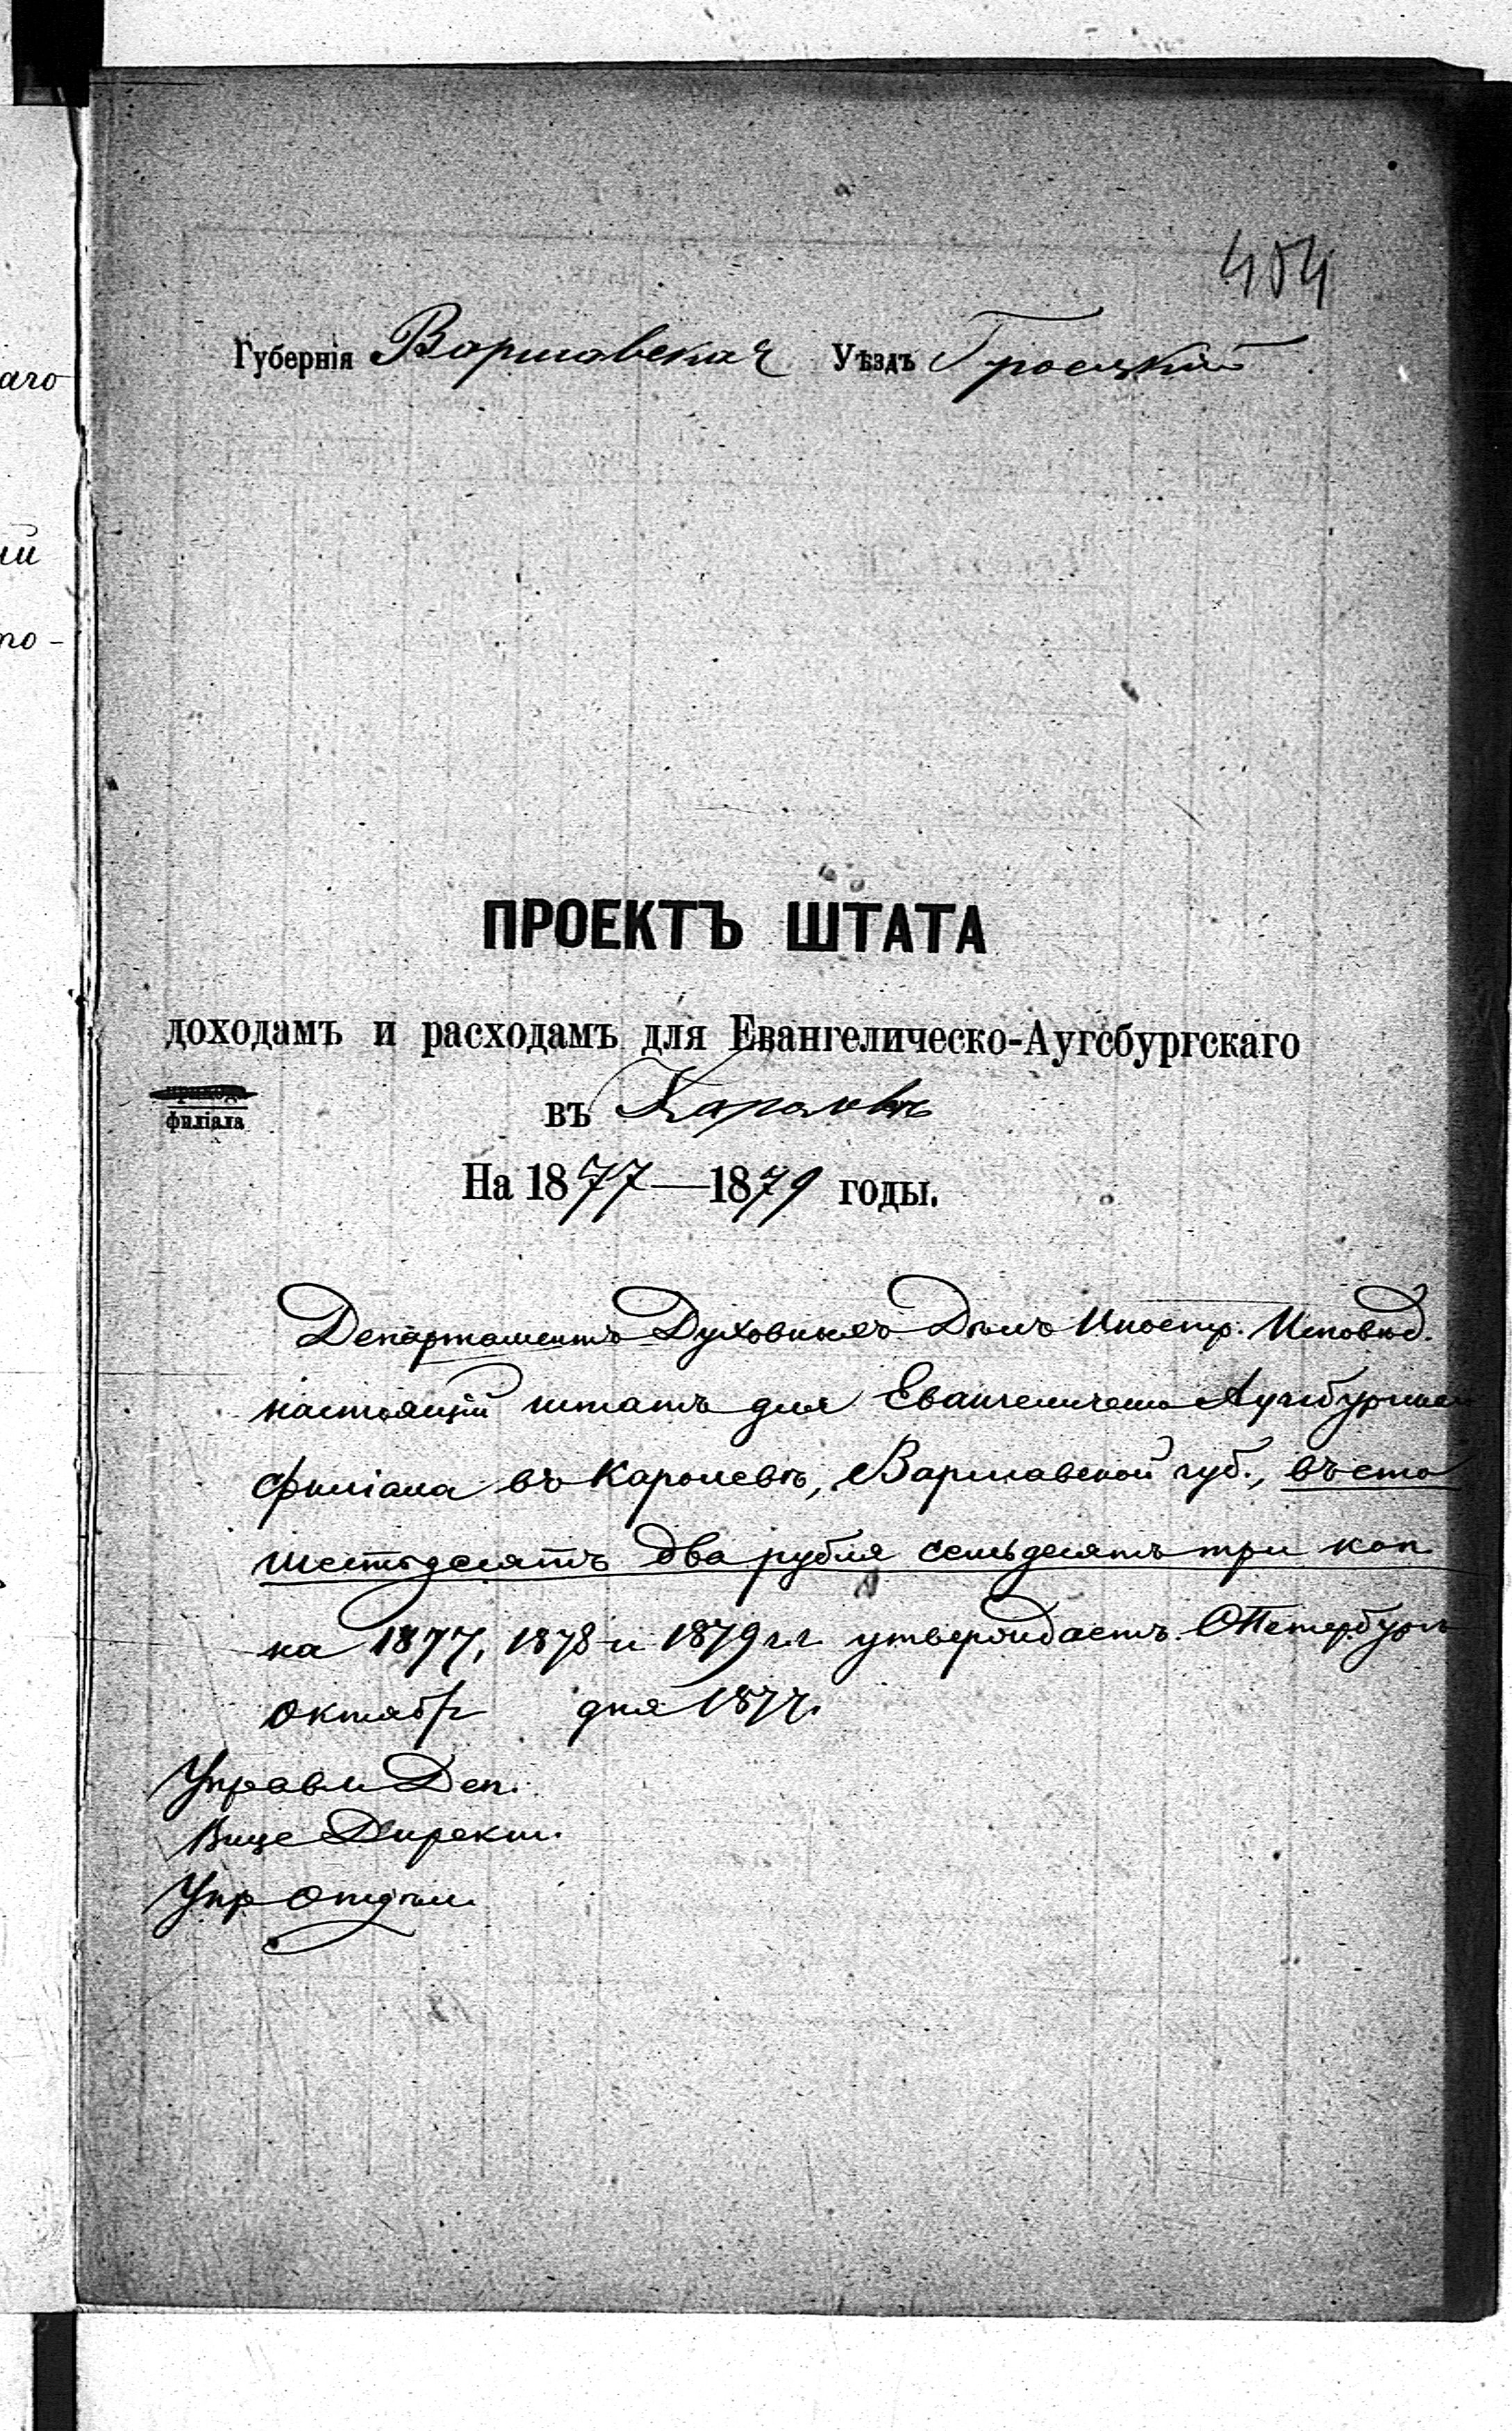 аго
ій
то-
404
Губернія Варшавская Уѣздъ Гроецкій
ПРОЕКТЪ ШТАТА
доходамъ и расходамъ для Евангелическо-Аугсбургскаго
прихода
филіала
въ Каролевѣ
На 1877—1879 годы.
Департаментъ Духовныхъ Дѣлъ Иностр. Исповѣд.
настоящій штатъ для Евангелическо Аугсбургскаго
филіала въ Каролевѣ, Варшавской губ., въ сто
шестьдесятъ два рубля семьдесятъ три коп.
на 1877, 1878 и 1879 г.г. утверждаетъ. СПетербургъ
октябр дня 1877.
Управл Деп.
Вице Директ.
Упр Отдѣл